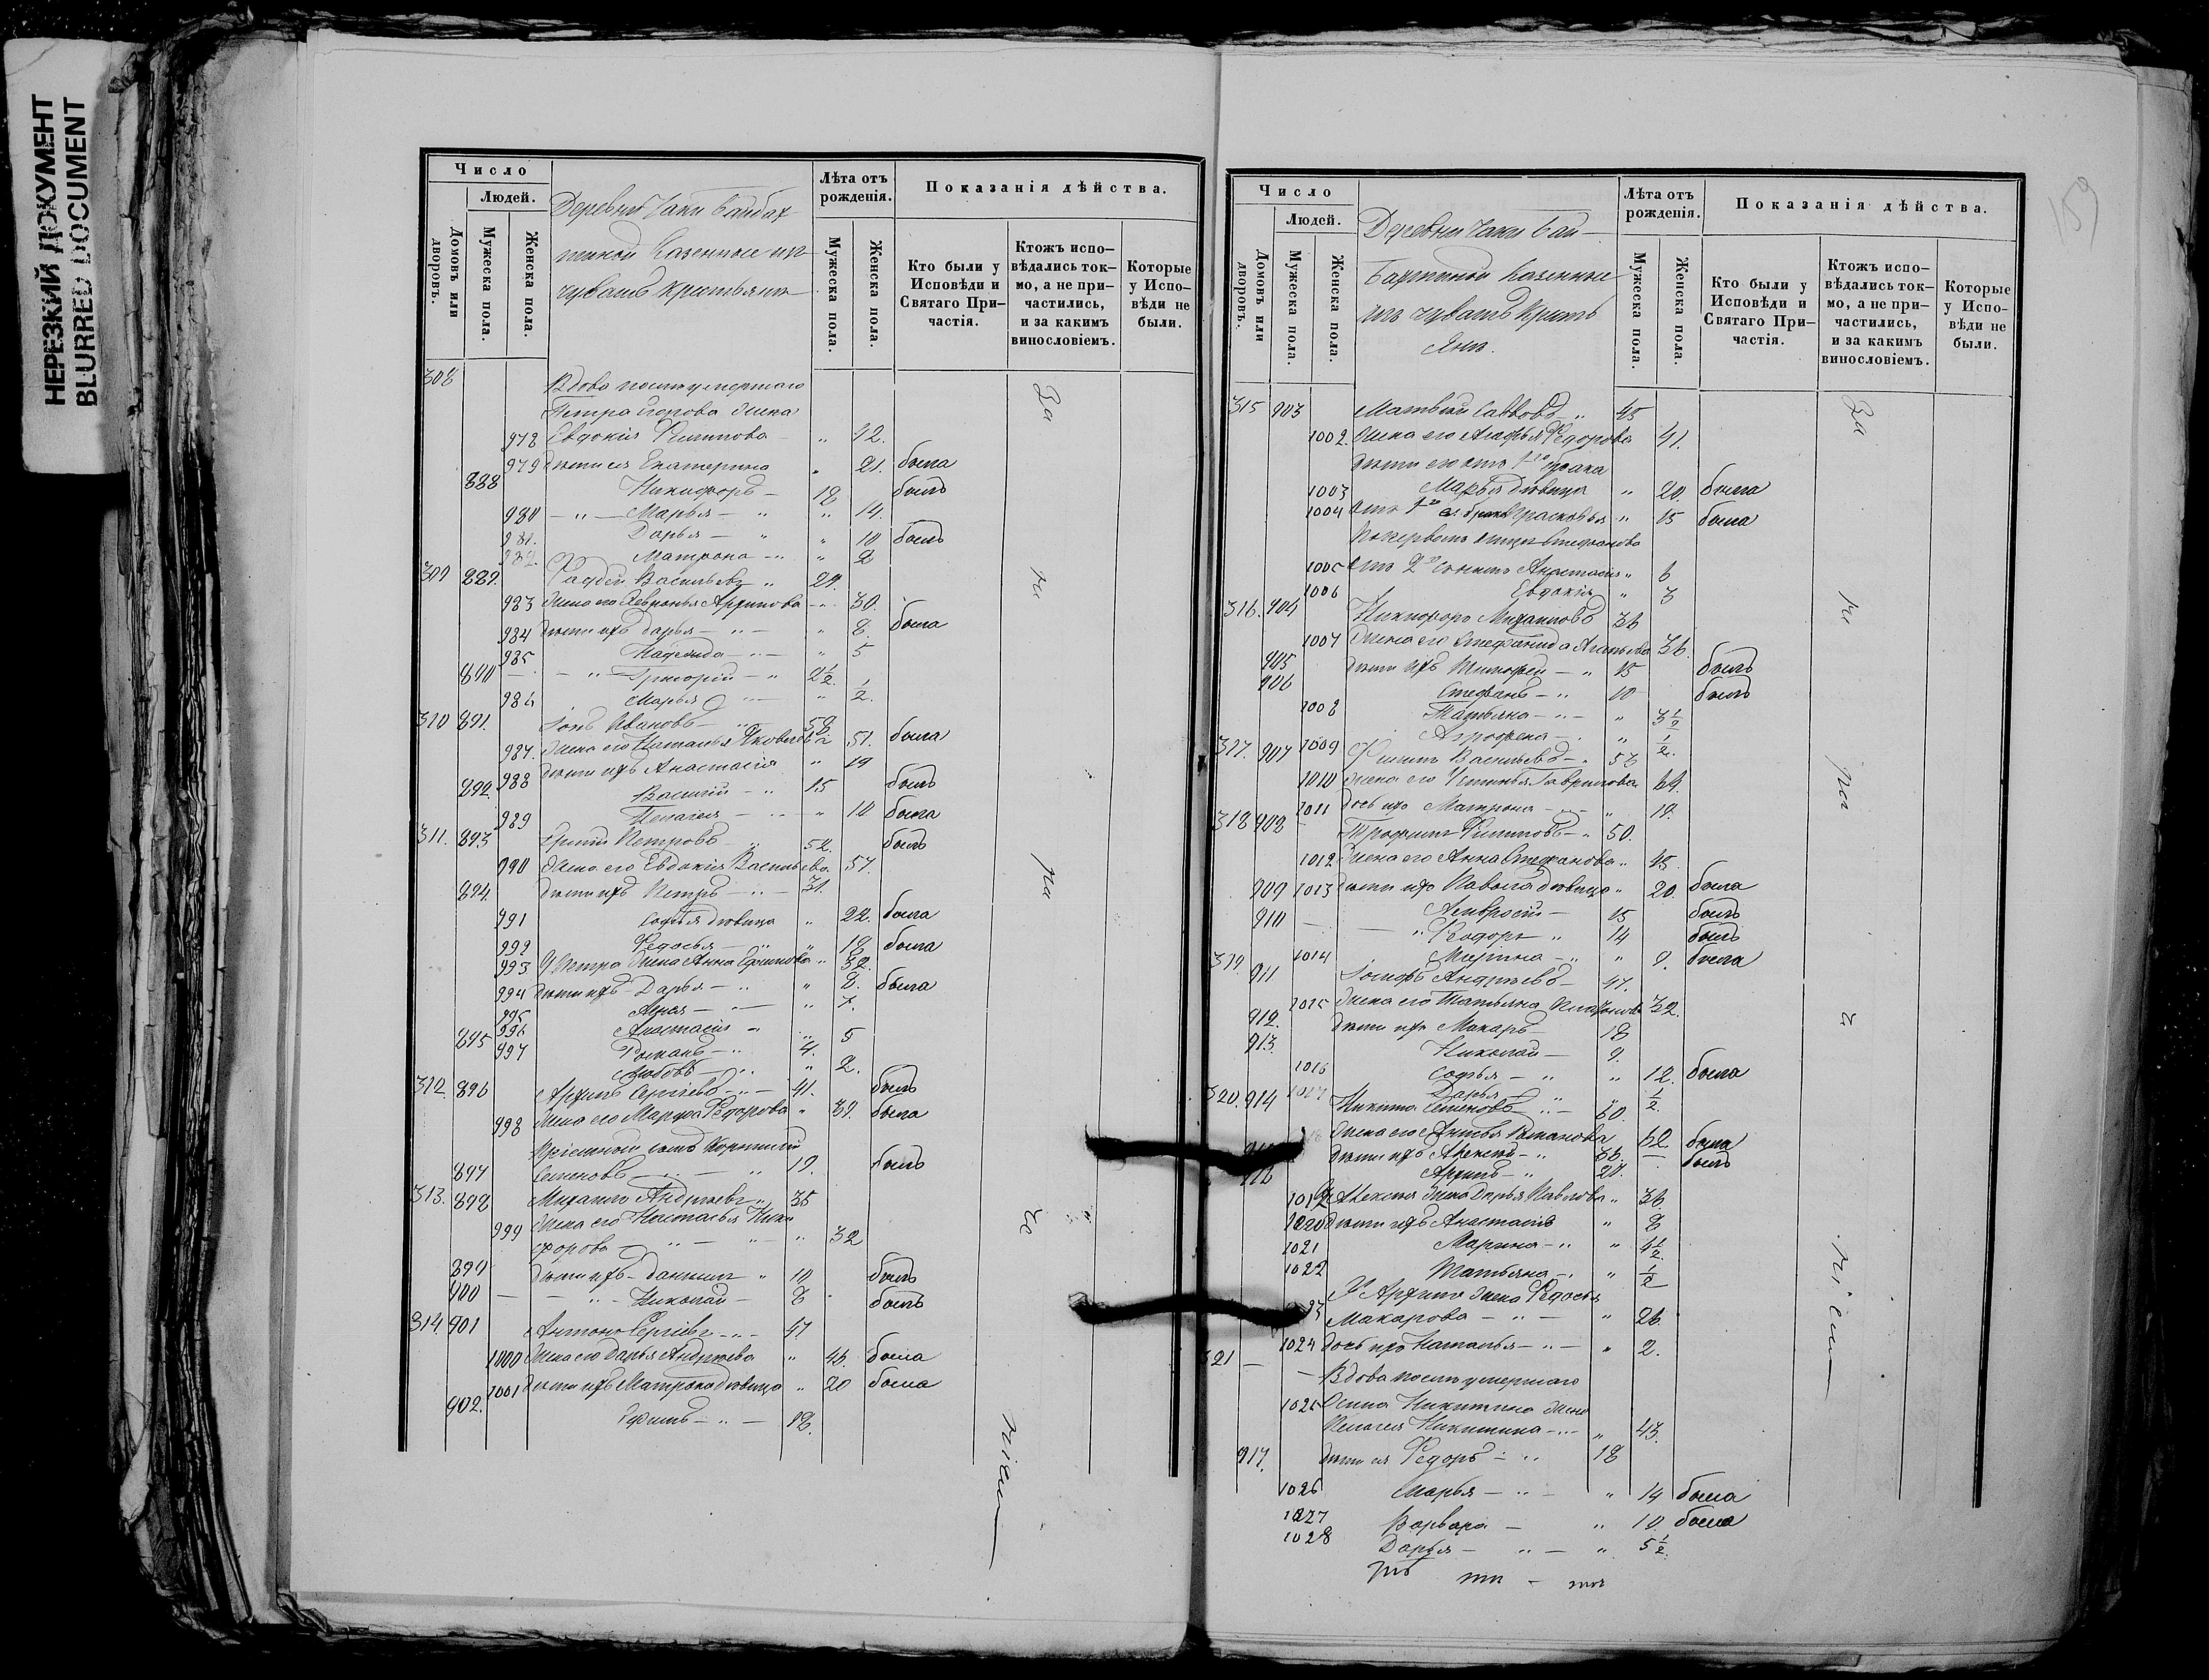 НЕРЕЗКИЙ ДОКУМЕНТ
BLURRED DOCUMENT
Число
Людей.
Домовъ или дворовъ.
Мужеска пола.
Женска пола.
Деревни Чаки
казенные изъ
чувашъ крестьяне
Лѣта отъ рожденія.
Мужеска пола.
Женска пола.
Показанія дѣйства.
Кто были у Исповѣди и Святаго При-частія.
Ктожъ испо-вѣдались ток-мо, а не при-частились, и за какимъ винословіемъ.
Которые у Испо-вѣди не были.
308
Вдова послѣ умершаго
Петра Егорова жена
978 Евдокія Филипова " 42.
979 дѣти ея Екатерина " 21. была
888 Никифоръ — 18 былъ
980 — " — Марья — " " 14.
981. Дарья — " " 10 былъ
982. Матрона — " " 2
309 889. Фадей Васильевъ " 29.
983 Жена его Хевронья Архипова — " 30.
984 дѣти ихъ Дарья — " — " 8. была
985 Надежда — " — " 5
890 — — " — Григорій — " 2½
986 Марья — " ½.
310 891. Іонъ Ивановъ — " 58
987. Жена его Наталья Яковлева " 51. была
988 дѣти ихъ Анастасія " 19
892. Василій — " 15 былъ
989 Пелагея — " — " 10 была
311. 893 Петровъ " 52. былъ
990 Жена его Евдокія Васильева 57.
894. дѣти ихъ Петръ — " — 31.
991 Софья дѣвица " 22. была
992 Федосья — " " 18 была
993 У Петра жена Анна " 32.
994 дѣти ихъ Дарья — " " 8. была
995 — " — " 7.
996 Анастасія — " " 5
895 Романъ — " 4.
997 Любовь — " " 2.
312. 896 Архипъ Сергіевъ — " — 41. былъ
998 Жена его Марфа Федорова " 39. была
Пріемной сынъ
897 Семеновъ — " — " 19. былъ
313. 898 Михаилъ Андреевъ " 35
999 Жена его Наталья Ники
форова — " — " — " 32
899 дѣти ихъ — Даніилъ " 10 былъ
900 — — " — Николай — 8 былъ
314. 901 Антонъ Сергіевъ — " — 47
1000 Жена его Дарья Андреева " 46. была
1001 дѣти ихъ Матрона дѣвица " 20 была
902. Ефимъ — " — 18.
За
не
ра
че
ніем
159
Число
Людей.
Домовъ или дворовъ.
Мужеска пола.
Женска пола.
Деревни Чаки Бай—
казенные
изъ чувашъ кресть
яне.
Лѣта отъ рожденія.
Мужеска пола.
Женска пола.
Показанія дѣйства.
Кто были у Исповѣди и Святаго При-частія.
Ктожъ испо-вѣдались ток-мо, а не при-частились, и за какимъ винословіемъ.
Которые у Испо-вѣди не были.
315 903 Матвѣй Саввовъ — " 45
1002. Жена его Агафья Федорова 41.
дѣти его отъ 1го брака
1003 Марья дѣвица " 20. была
1004 отъ 1го ея брака Прасковья " 15 была
Стефанова
1005 отъ 2го Анастасія " 6
1006 Евдокія " 3
316. 904 Никифоръ Михаиловъ 36
1007 Жена его Стефанида 36.
905 дѣти ихъ Тимофей — " 15 былъ
906 Стефанъ — " 10 былъ
1008 Татьяна — " — " 3½
1009 Агрофена — " " ½.
317. 907 Филипъ Васильевъ — " 58
1010 Жена его Устинья Гаврилова 64.
1011 дочь ихъ Матрона — " — " 19.
318 908 Трофимъ Филиповъ — " 50.
1012 Жена его Анна Стефанова " 45.
1013 дѣти ихъ Павела дѣвица " 20. была
909 Амвросій — 15 былъ
910 — — " Федоръ " 14 былъ
1014 — " " 9. была
319. 911 Іосифъ Андреевъ — 47.
1015 Жена его Татьяна 32.
912. дѣти ихъ Макаръ — 18
913. Николай — 9.
1016 Софья — " " 12. была
1017 Дарья " " ½.
320. 914 Никита Семеновъ — " — 60.
Жена его Романова 62. была
дѣти ихъ Алексѣй — " 36. — былъ
Архипъ — " 27.
1019 У Алексѣя жена Дарья Павлова " 36.
1020 дѣти ихъ Анастасія " 8
1021 Марина — " " 4½.
1022 Татьяна — " " ½
У Архипа жена Федосья
Макарова — " — " 26.
1024 дочь ихъ Наталья — " — " 2.
321 —
— Вдова послѣ умершаго
1025 Осипа Никитина жена
Пелагея Никитина — " — " 43.
917. дѣти ея Федоръ — " 18
1026 Марья — " — " 14 была
1027 Варвара — " 10 была
1028 Дарья — " — " 5½.
За
не
ра
че
ніем